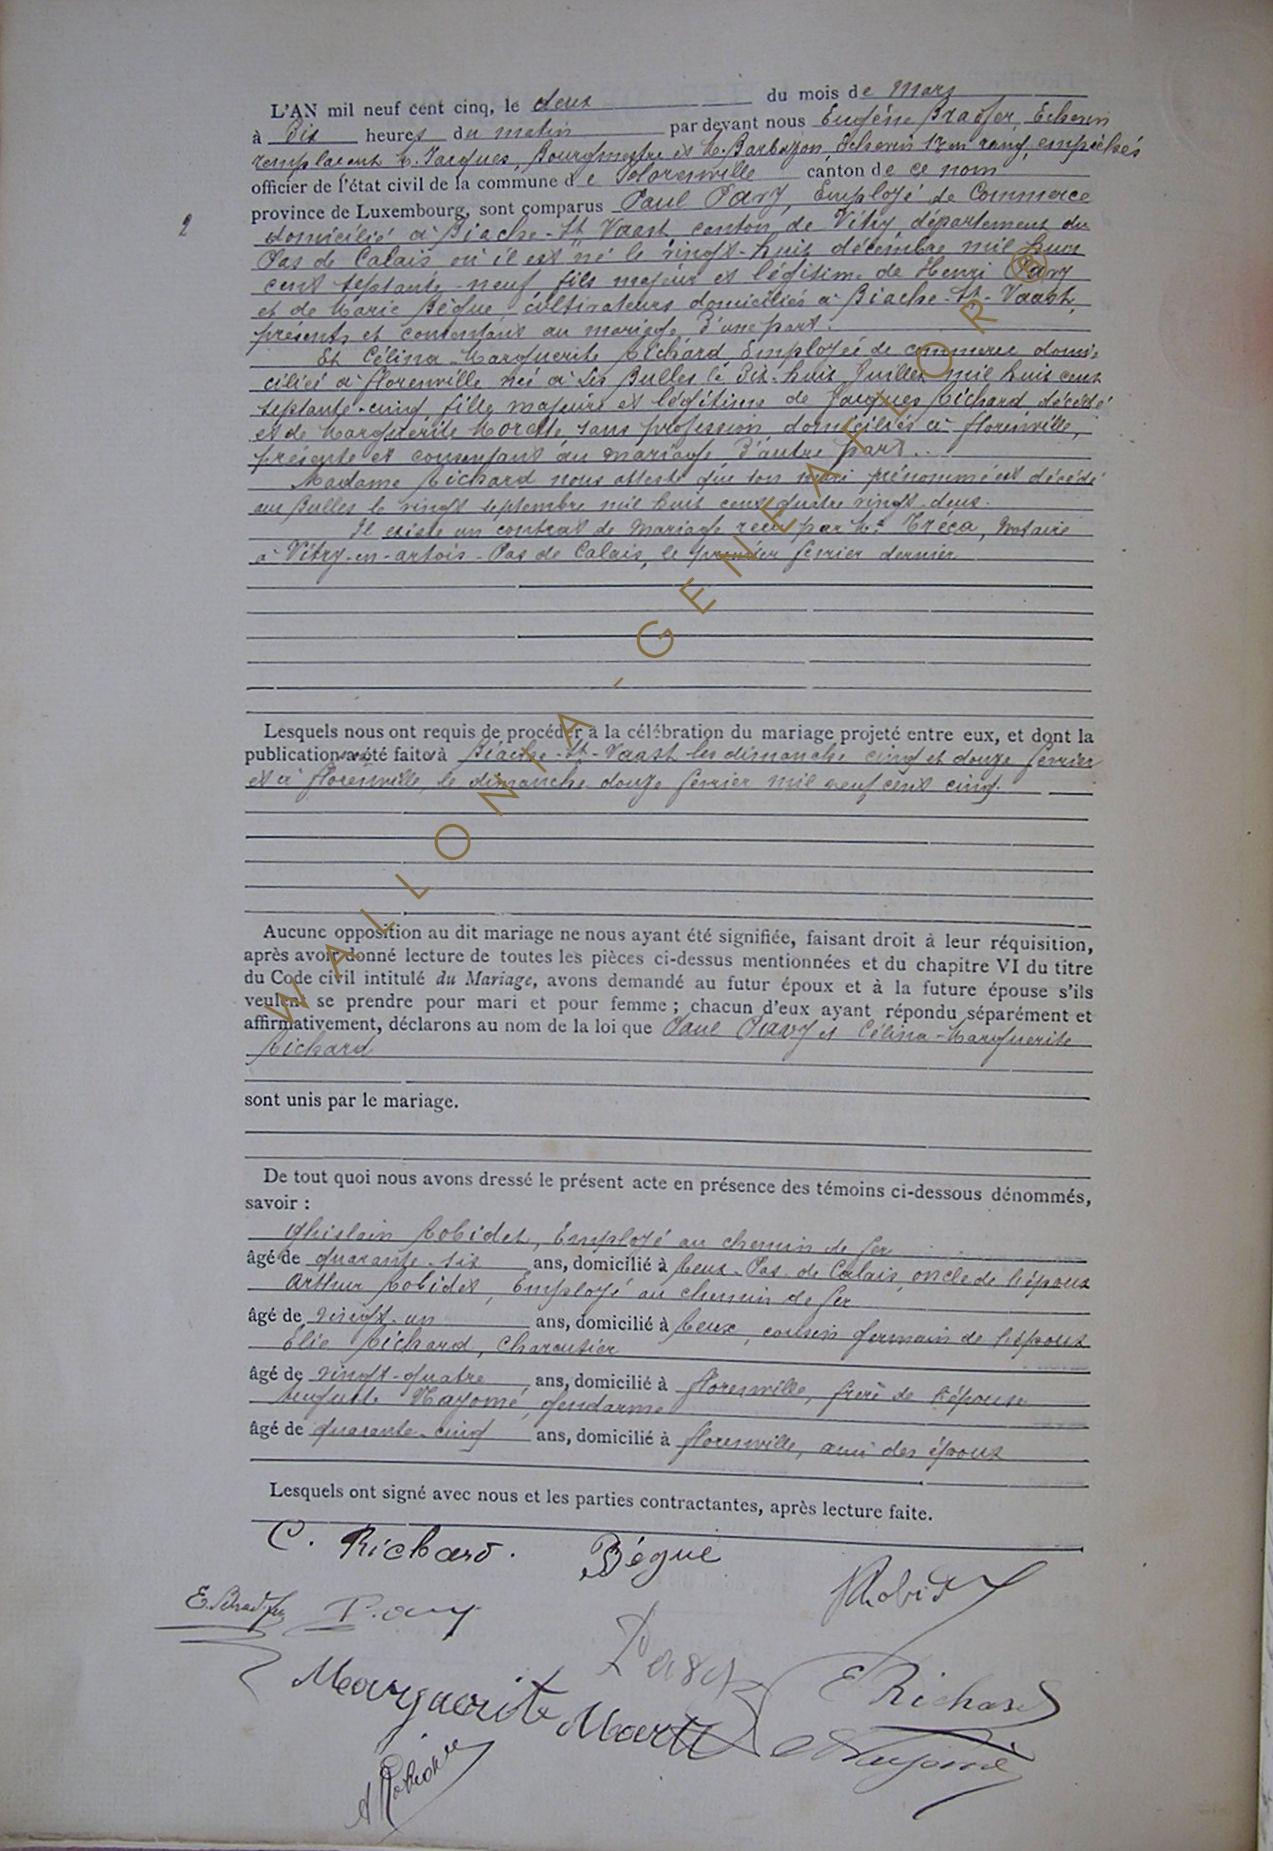 L'AN mil neuf cent cinq, le deux du mois de Mars
à Dix heures du matin par devant nous Eugène Bradfer, Echevin
remplacent M. Jacques, Bourgmestre et M. Barbazon, Echevin 1er en rang, empêchés
officier de l'état civil de la commune de Florenville canton de ce nom
province de Luxembourg, sont comparus Paul Pavy, Employé de Commerce
2
domicilié à Biache-St Vaast canton de Vitry, département du
Pas de Calais où il est né le vingt-huit décembre mil huit
cent septante-neuf, fils majeur et légitime de Henri Pavy
et de Marie Bègue, cultivateurs domiciliés à Biache-St-Vaast,
présents et consentant au mariage D'une part.
Et Célina-Marguerite Richard Employée de commerce domi-
ciliée à Florenville née à Les Bulles le Dix-huit Juillet mil huit cent
septante-cinq, fille majeure et légitime de Jacques Richard, décédé
et de Marguerite Morette, sans profession domiciliés à Florenville,
présente et consentant au mariage D'autre part..
Madame Richard nous atteste que son mari prénommé est décédé
aux Bulles le vingt septembre mil huit cent quatre vingt-deux.
Il existe un contrat de Mariage reçu par Me Tréca, Notaire
à Vitry-en-artois-Pas de Calais, le premier février dernier
Lesquels nous ont requis de procéder à la célébration du mariage projeté entre eux, et dont la
publication a été faite à Biache-St-Vaast les dimanche cinq et douze février
et à Florenville, le dimanche douze février mil neuf cent cinq.
Aucune opposition au dit mariage ne nous ayant été signifiée, faisant droit à leur réquisition,
après avoir donné lecture de toutes les pièces ci-dessus mentionnées et du chapitre VI du titre
du Code civil intitulé du Mariage, avons demandé au futur époux et à la future épouse s'ils
veulent se prendre pour mari et pour femme ; chacun d'eux ayant répondu séparément et
affirmativement, déclarons au nom de la loi que Paul Pavy et Célina-Marguerite
Richard
sont unis par le mariage.
De tout quoi nous avons dressé le présent acte en présence des témoins ci-dessous dénommés,
savoir :
Ghislain Robidet, Employé au chemin de fer
âgé de quarante-six ans, domicilié à Reux-Pas-de Calais, oncle de l'époux
Arthur Robidet, Employé au chemin de fer
âgé de vingt-un ans, domicilié à Reux, cousin germain de l'époux
Elie Richard, Charcutier
âgé de vingt-quatre ans, domicilié à Florenville, frère de l'épouse
Auguste Nayomé, gendarme
âgé de quarante-cinq ans, domicilié à Florenville, ami des époux
Lesquels ont signé avec nous et les parties contractantes, après lecture faite.
C. Richard. Bégue
Robidet
E. Bradfer P. avy
Pavy
E Richard
Marguerite
A Robidet
WALLONIA-GENEAFLOR ®